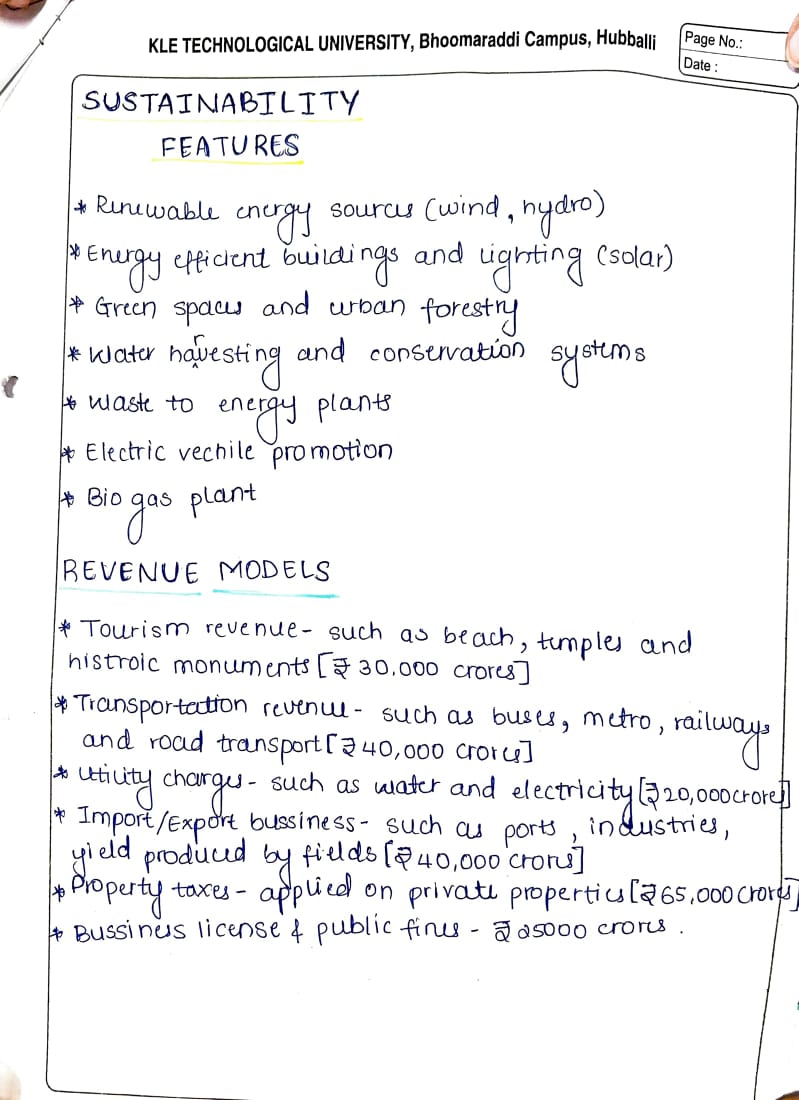 KLE TECHNOLOGICAL UNIVERSITY, Bhoomaraddi Campus, Hubballi
Page No.:
Date :
SUSTAINABILITY
FEATURES
* Renewable energy sources (wind, hydro)
* Energy efficient buildings and lighting (solar)
* Green spaces and urban forestry
* Water harvesting and conservation systems
* Waste to energy plants
* Electric vechile promotion
* Bio gas plant
REVENUE MODELS
* Tourism revenue - such as beach, temples and
histroic monuments [₹ 30,000 crores]
* Transportation revenue - such as buses, metro, railways
and road transport [₹40,000 crores]
* Utility charges - such as water and electricity [₹20,000 crores]
* Import/Export bussiness - such as ports, industries,
yield produced by fields [₹40,000 crores]
* Property taxes - applied on private properties [₹65,000 crores]
* Bussiness license & public fines - ₹25000 crores.